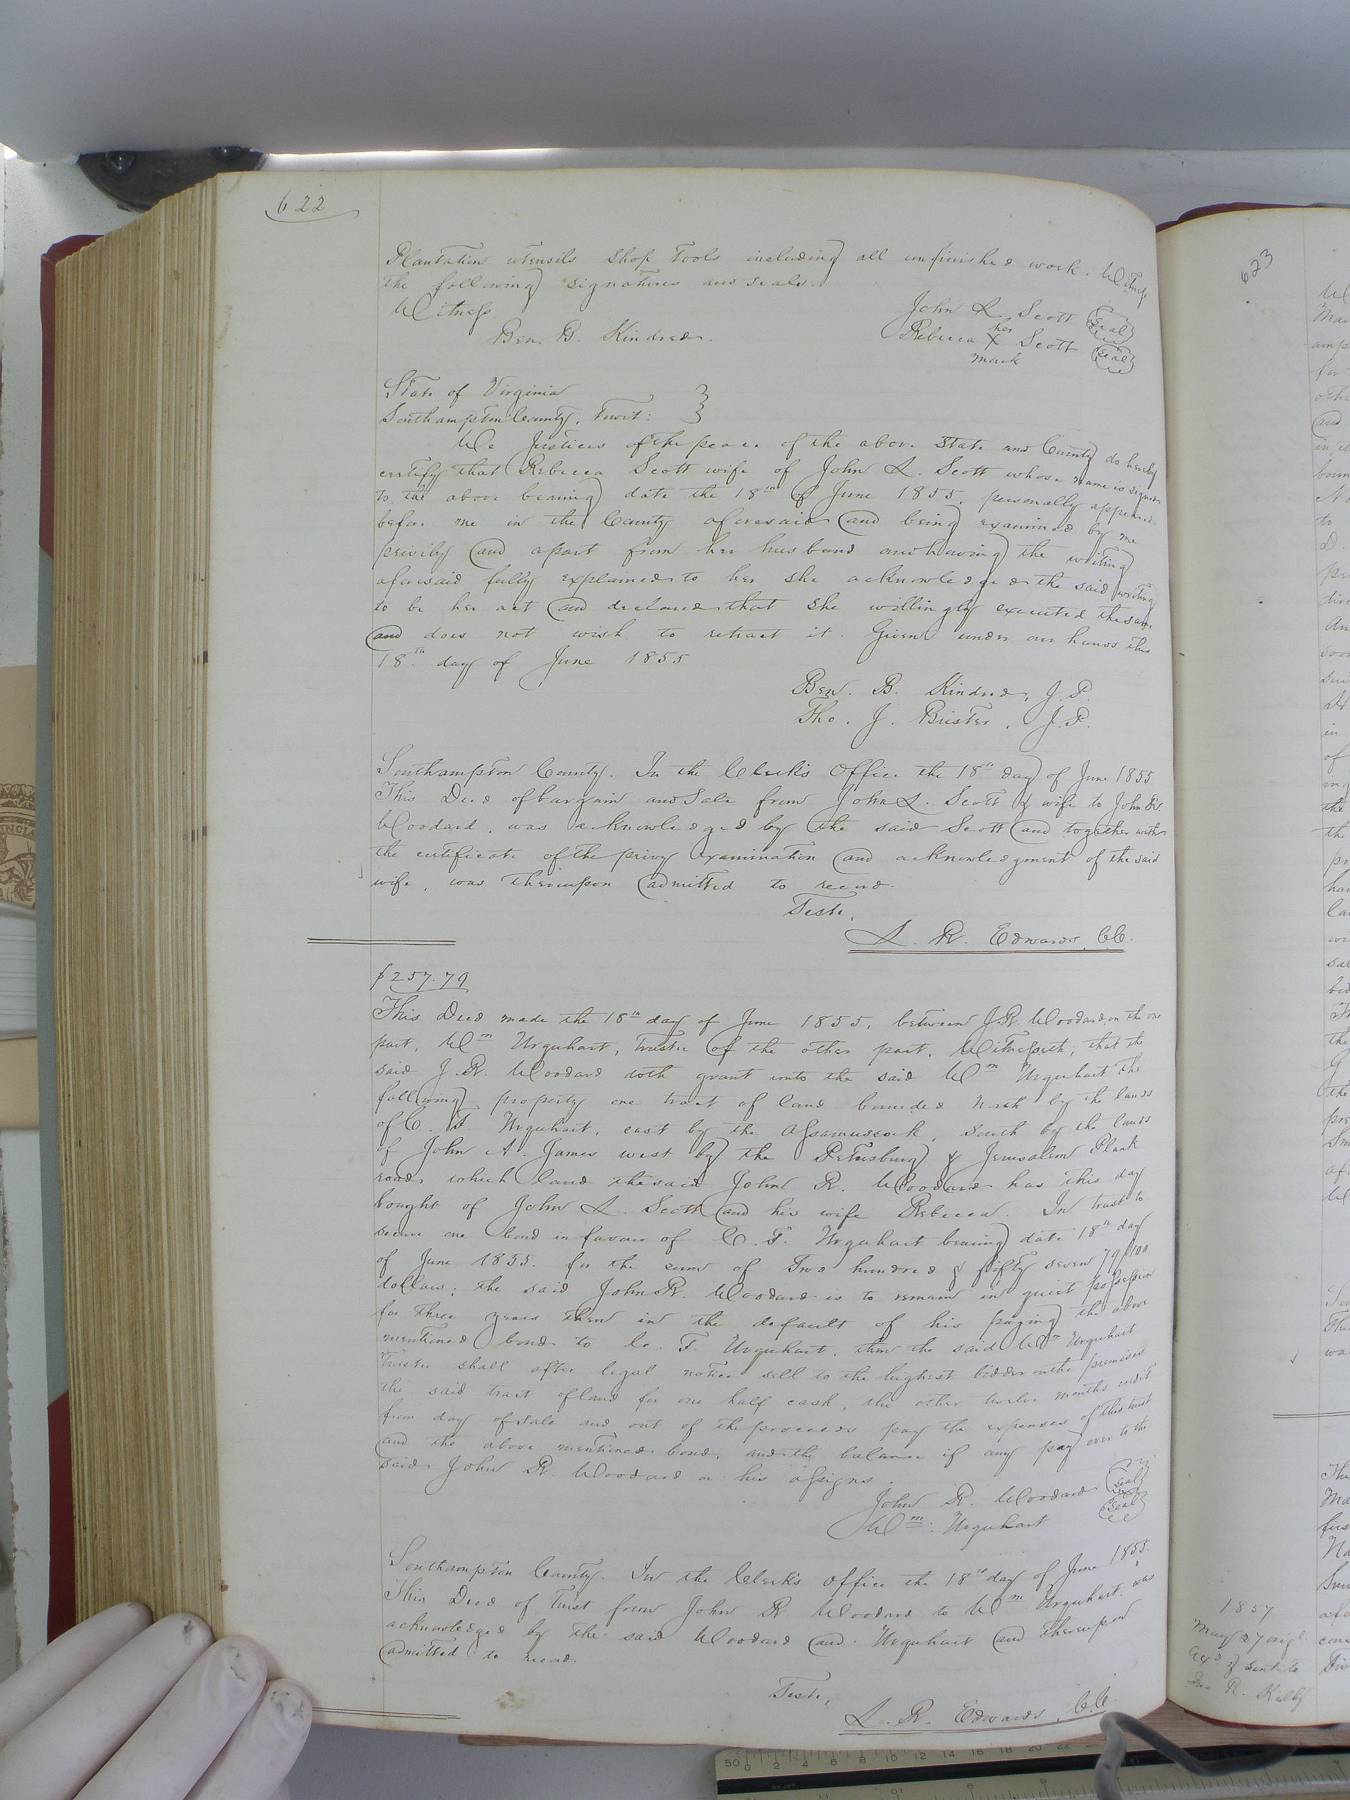 622
Plantation utensils Shop Tools including all unfinished work. Witness
the following signatures and seals.
Witness
John L. Scott (Seal)
Ben. B. Kindred.
her
Rebecca X Scott (Seal)
mark
State of Virginia }
Southampton County, Towit: }
We Justices of the peace of the above State and County do hereby
certify that Rebecca Scott wife of John L. Scott whose name is signed
to the above bearing date the 18th of June 1855, personally appeared
before me in the County aforesaid and being examined by me
privily and apart from her husband and having the writing
aforesaid fully explained to her she acknowledged the said writing
to be her act and declared that she willingly executed the same
and does not wish to retract it. Given under our hands this
18th day of June 1855
Ben. B. Kindred, J.P.
Tho. J. Brister, J.P.
Southampton County. In the Clerk's Office the 18th day of June 1855
This Deed of bargain and Sale from John L. Scott & wife to John R.
Woodard, was acknowledged by the said Scott and together with
the certificate of the privy examination and acknowledgment of the said
wife, was thereupon admitted to record.
Teste,
L. R. Edwards, CC.
$257.79
This Deed made the 18th day of June 1855, between J.R. Woodard, on the one
part, Wm Urquhart, trustee of the other part, Witnesseth, that the
said J. R. Woodard doth grant unto the said Wm Urquhart the
following property one tract of land bounded North by the lands
of C. F. Urquhart, east by the Assamuscock, South by the lands
of John A. James west by the Petersburg & Jerusalem Plank
road, which land the said John R. Woodard has this day
bought of John L. Scott and his wife Rebecca. In trust to
secure one bond in favour of C. F. Urquhart bearing date 18th day
of June 1855. for the sum of Two hundred & fifty seven 79/100
dollars; the said John R. Woodard is to remain in quiet possession
for three years then in the default of his paying the above
mentioned bond to C. F. Urquhart, then the said Wm Urquhart
Trustee shall after legal notice sell to the highest bidder on the premises
the said tract of land for one half cash, the other twelve months credit
from day of sale and out of the proceeds pay the expenses of this trust
and the above mentioned bond, and the balance if any pay over to the
said John R. Woodard or his assigns.
John R. Woodard (Seal)
Wm Urquhart (Seal)
Southampton County. In the Clerk's Office the 18th day of June 1855.
This Deed of Trust from John R Woodard to Wm Urquhart, was
acknowledged by the said Woodard and Urquhart and thereupon
admitted to record.
Teste,
L. R. Edwards, CC.
623
1857
May 27